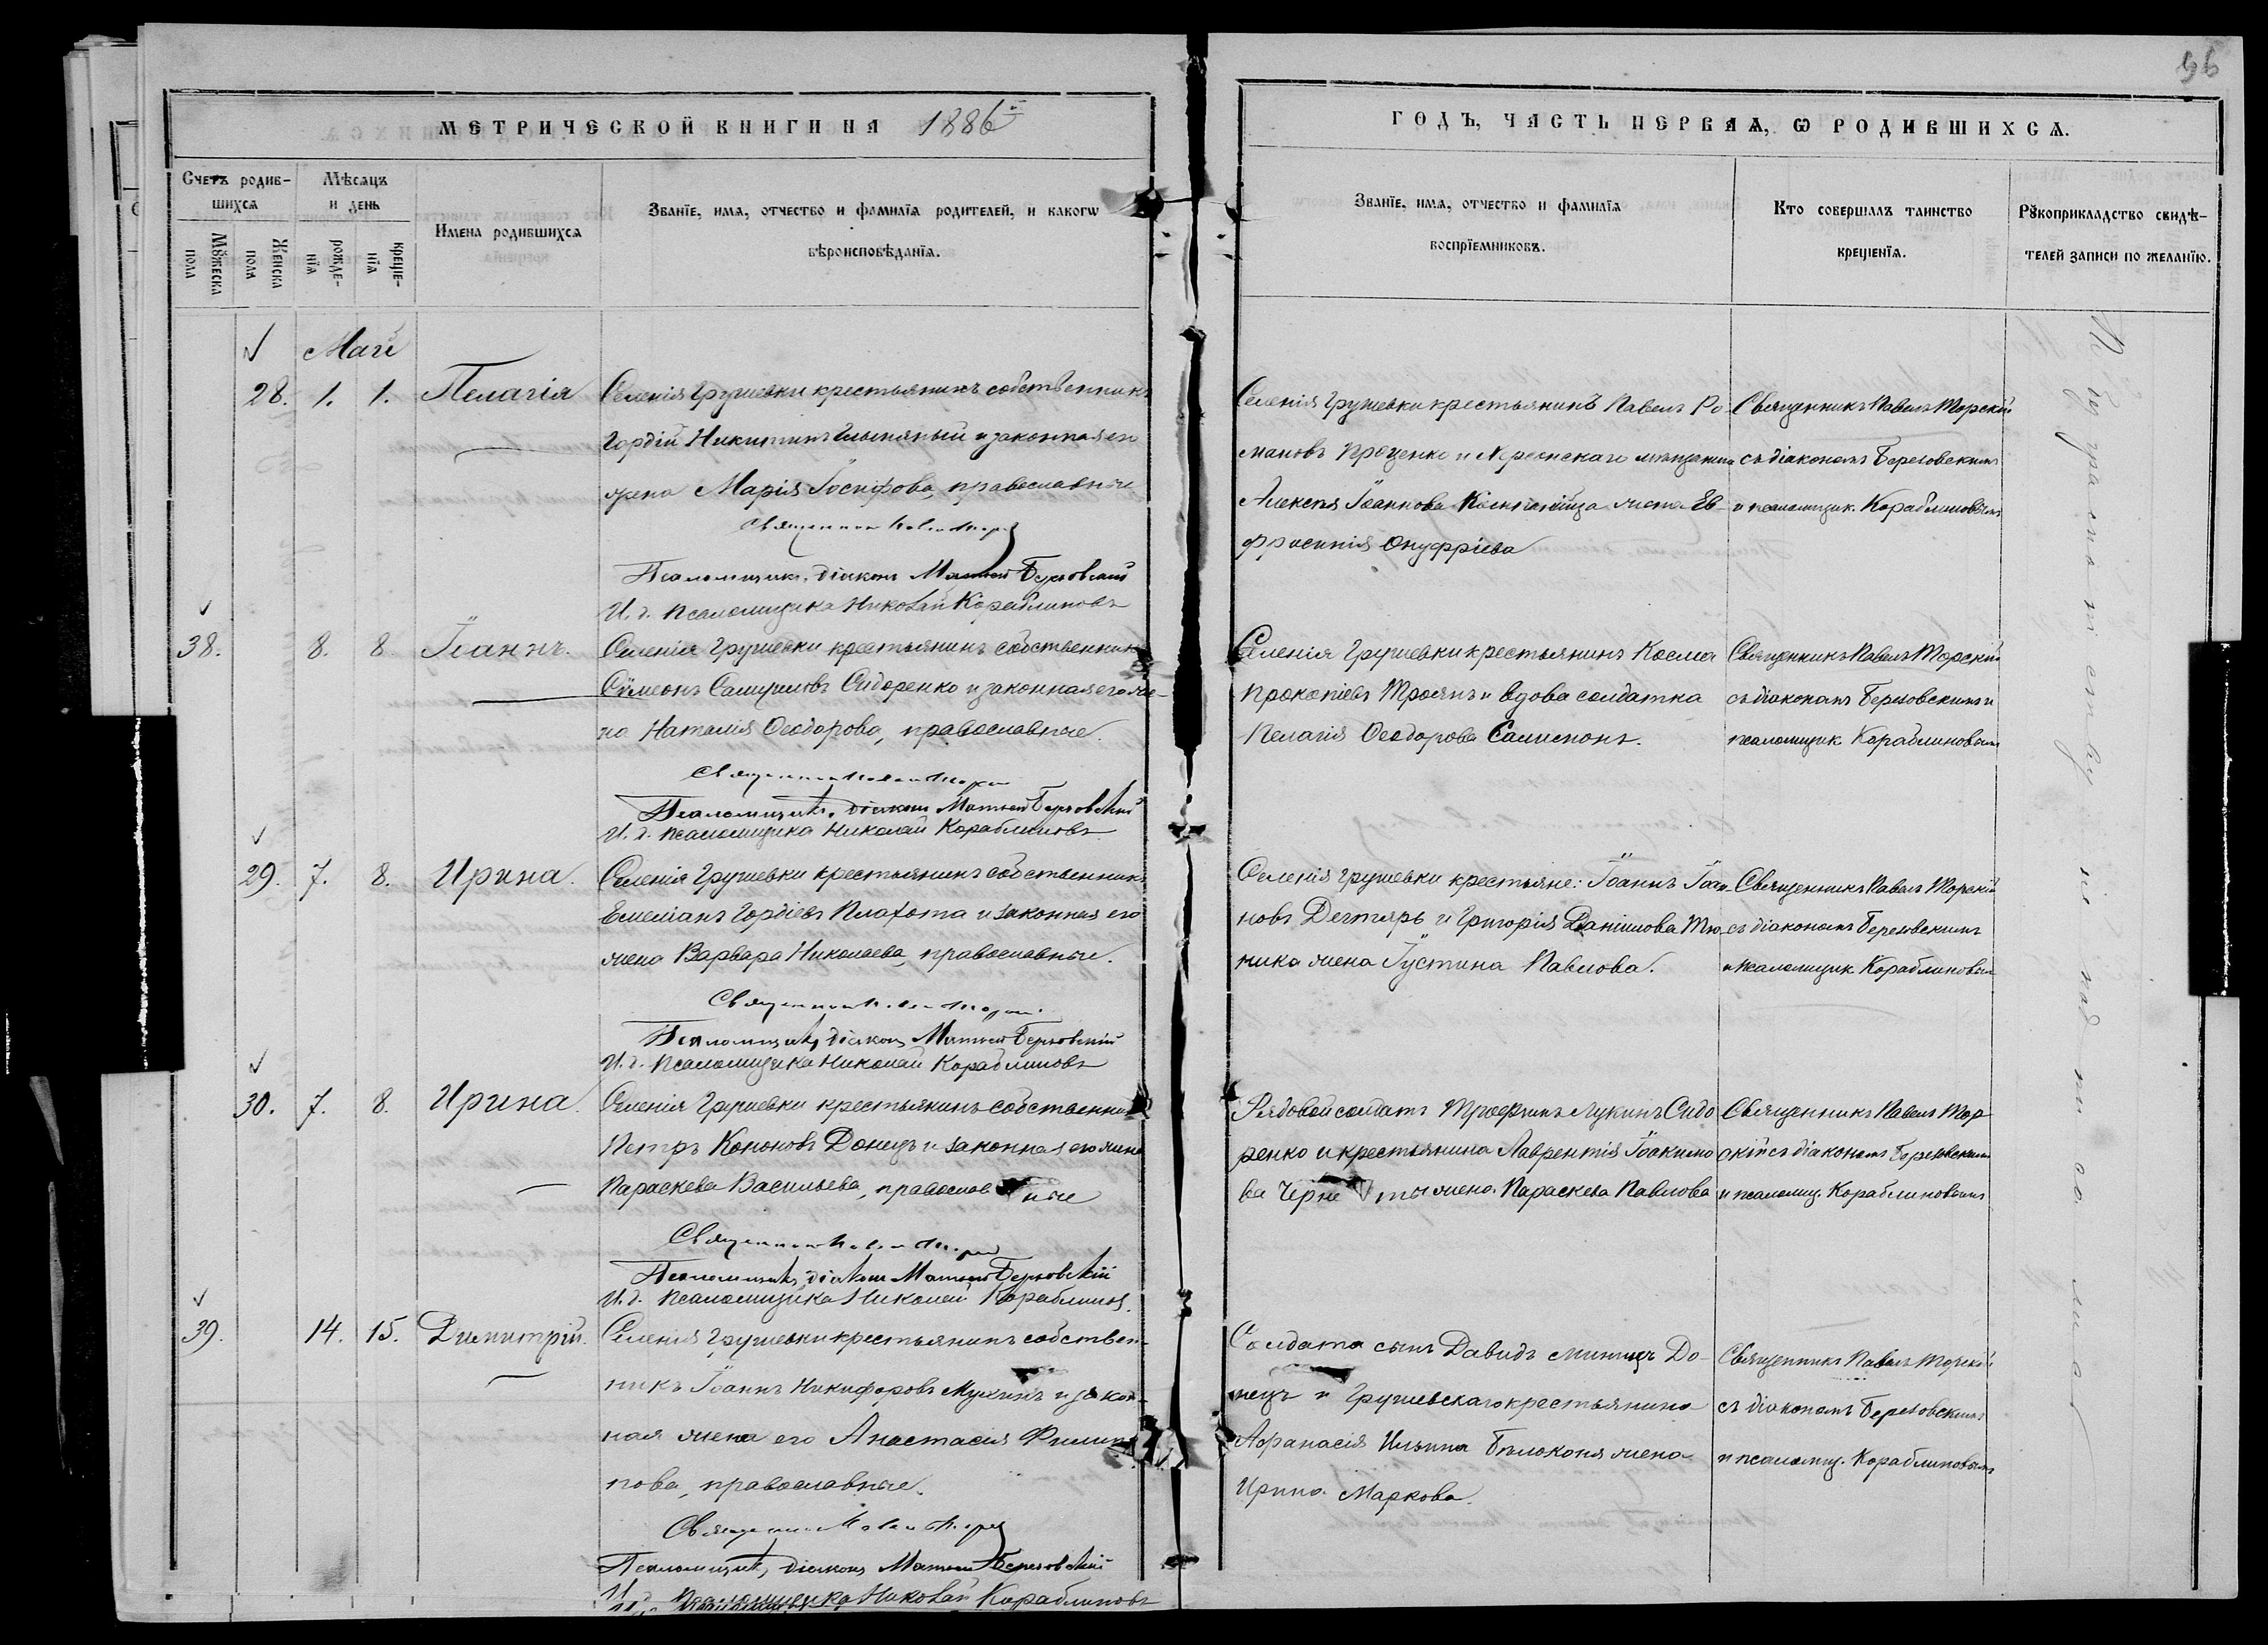 96
МЕТРИЧЕСКОЙ КНИГИ НА 1886й
ГОДЪ, ЧАСТЬ ПЕРВАѦ, Ѡ РОДИВШИХСѦ.
Счетъ родив-
шихсѧ
Мѣсѧцъ
и день
Имена родившихсѧ
Званїе, имѧ, отчество и фамилїѧ родителей, и какогѡ
вѣроисповѣданїѧ.
Мꙋжеска
пола
Женска
пола
рожде-
нїѧ
креще-
нїѧ
Званїе, имѧ, отчество и фамилїѧ
воспрїемниковъ.
Кто совершалъ таинство
крещенїѧ.
Рꙋкоприкладство свидѣ-
телей записи по желанїю.
Май
28. 1. 1. Пелагія
Селенія Грушевки крестьянинъ собственникъ
Гордій Никитинъ и законная его
жена Марія Іосифова, православные
Священникъ Павелъ Торскій
Псаломщикъ, діаконъ Матвей Березовский
И. д. псаломщика Николай Кораблиновъ
Селенія Грушевки крестьянинъ Павелъ Ро-
мановъ Проценко и Херсонскаго мещанина
Алексѣя Іоаннова жена Ев-
фросинія Онуфріева
Священникъ Павелъ Торскій
съ діакономъ Березовскимъ
и псаломщик. Кораблиновымъ
38. 8. 8. Іоаннъ.
Селенія Грушевки крестьянинъ собственникъ
Сѵмеонъ Самуиловъ Сидоренко и законная его же-
на Наталія Ѳеодорова, православные.
Священникъ Павелъ Торскій
Псаломщикъ, діаконъ Матвей Березовскій
И. д. псаломщика Николай Кораблиновъ
Селенія Грушевки крестьянинъ Косма
Прокопіевъ Троянъ и вдова солдатка
Пелагія Ѳеодорова Самисионъ.
Священникъ Павелъ Торскій
съ діакономъ Березовскимъ и
псаломщик Кораблиновым
29. 7. 8. Ирина.
Селенія Грушевки крестьянинъ собственникъ
Емеліанъ Гордіевъ Плахота и законная его
жена Варвара Николаева, православные.
Священникъ Павелъ Торскій
Псаломщикъ, діаконъ Матвей Березовскій
И. д. псаломщика Николай Кораблиновъ
Селенія Грушевки крестьяне: Іоаннъ Іоан-
новъ Дегтярь и Григорія Даніилова Тю-
ника жена Іустина Павлова.
Священникъ Павелъ Торскій
съ діакономъ Березовскимъ
и псаломщик Кораблиновым
30. 7. 8. Ирина.
Селенія Грушевки крестьянинъ собственникъ
Петръ Кононовъ Донецъ и законная его жена
Параскева Васильева, православные
Священникъ Павелъ Торскій
Псаломщикъ, діаконъ Матвей Березовскій
И. д. псаломщика Николай Кораблиновъ.
Рядовой солдатъ Трофимъ Лукинъ Сидо
ренко и крестьянина Лаврентія Іоакимо
ва жена Параскева Павлова
Священникъ Павелъ Тор
скій съ діакономъ Березовскимъ
и псаломщ. Кораблиновымъ
39. 14. 15. Димитрій.
Селенія Грушевки крестьянинъ собствен-
никъ Іоаннъ Никифоровъ Мухинъ и закон-
ная жена его Анастасія Филип-
пова, православные.
Священникъ Павелъ Торскій
Псаломщикъ, діаконъ Матвей Березовскій
И. д. псаломщика Николай Кораблиновъ
Солдата сынъ Давидъ До-
нецъ и Грушевскаго крестьянина
Аѳанасія Ильина Бѣлоконя жена
Ирина Маркова.
Священникъ Павелъ Торскій
съ діакономъ Березовскимъ
и псаломщ. Кораблиновымъ